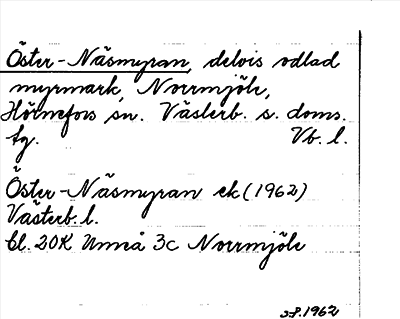 Öster-Näsmyran, delvis odlad
myrmark, Norrmjöle,
Hörnefors sn. Västerb. s. doms.
tg. Vb. l.
Öster-Näsmyran ek (1962)
Västerb. l.
bl. 20K Umeå 3c Norrmjöle
1962